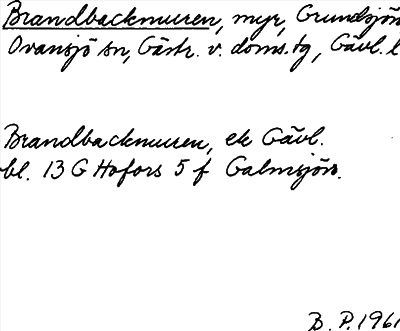 Brandbackmuren, myr, Grundsjön
Ovansjö sn, Gästr. v. doms.tg, Gävl. l
Brandbackmuren, ek Gävl.
bl. 13 G Hofors 5 f Galmsjön.
B. P. 1961